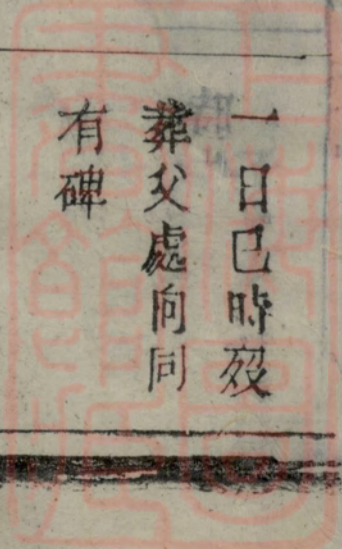 一日巳時歿
葬父處向同
有碑